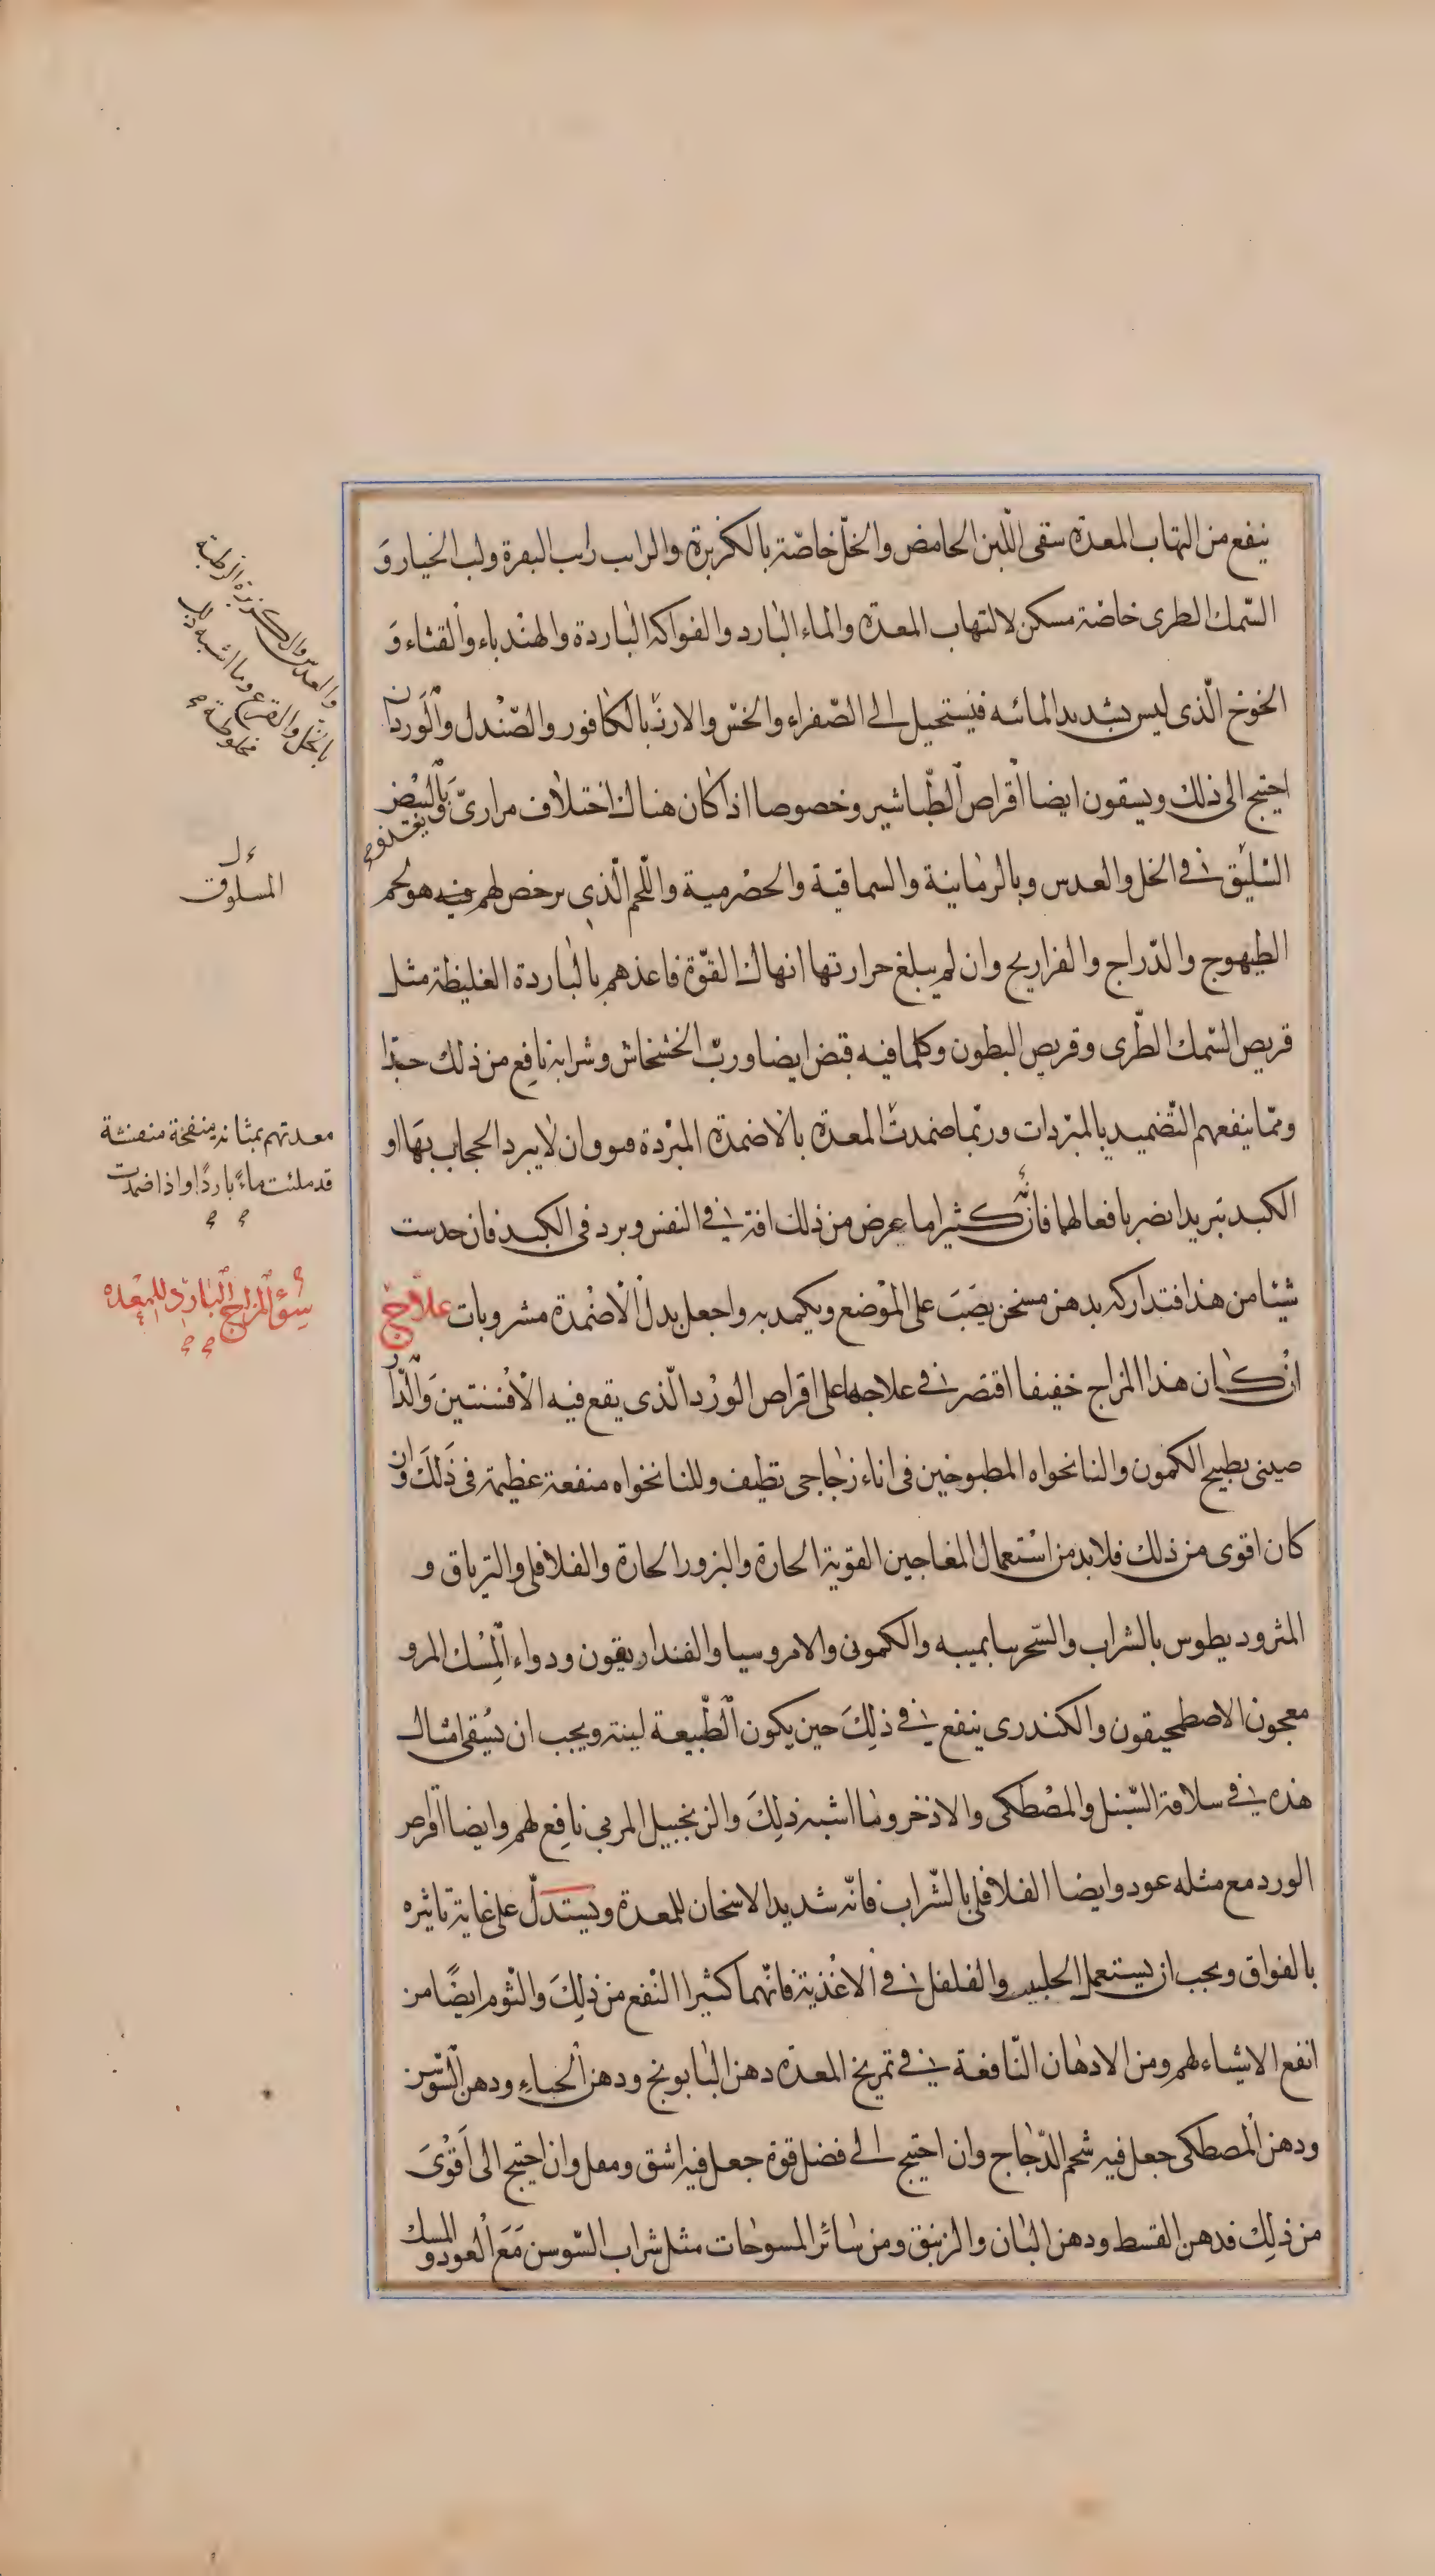 ينفع من التهاب المعدة سقى اللبن الحامض والخلّ خاصّة بالكزبرة والرايب رايب البقرة ولب الخيار وَ
السّمك الطرى خاصّة مسكن لالتهاب المعدة والماء البارد والفواكه الباردة والهندباء والقثاء وَ
الخوخ الّذى ليس بشديد المائيه فيستحيل الى الصّفراء والخسّ والارز بالكافور والصّندل والورد ان
احتيج الى ذلك ويسقون ايضا اقراص الطّباشير وخصوصا اذا كان هناك اختلاف مرارىّ ويغتذو بالبيض
السّليق فى الخل والعدس وبالرمانية والسماقية والحصرمية واللّحم الّذى يرخص لهم فيه هو لحم
الطيهوج والدّراج والفراريج وان لم يبلغ حرارتها انهاك القوّة فاغذهم بالباردة الغليظة مثل
قريص السّمك الطّرى وقريص البطون وكلما فيه قبض ايضا وربّ الخشخاش وشرابه نافع من ذلك جدّا
وممّا ينفعهم التّضميد بالمبرّدات وربّما ضمدت المعدة بالاضمدة المبرّدة فتوق ان لا يبرد الحجاب بها او
الكبد تبريدا يضر بافعالهما فانّه كثيرا ما عرض من ذلك افة فى النفس وبرد فى الكبد فان حدست
شيئا من هذا فتداركه بدهن مسخن يصَبّ على الموضع ويكمد به واجعل بدل الاضمدة مشروبات علاج
ان كان هذا المزاج خفيفا اقتصر فى علاجها على اقراص الورد الّذى يقع فيه الافسنتين والدار
صينى بطبيخ الكمّون والنانخواه المطبوخين فى اناء زجاجى نظيف وللنانخواه منفعة عظيمة فى ذلك وان
كان اقوى من ذلك فلابد من استعمال المعاجين القوّية الحارة والبزور الحارة والفلافلى والترياق و
المثروديطوس بالشراب والسّحرسا بميبه والكمونى والامروسيا والفنداريقون ودواء المسك المر و
معجون الاصطمحيقون والكندرى ينفع فى ذلِكَ حين يكون الطّبيعة لينة ويجب ان يُسقى امثال
هذه فى سلاقة السّنبل والمصطكى والاذخر وما اشبه ذلِكَ والزنجبيل المربى نافع لهم وايضا اقراص
الورد مع مثله عود وايضا الفلافلى بالشّراب فانّه شديد الاسخان للمعدة ويستدلّ على غاية تاثيره
بالفواق ويجب ان يستعمل الحلتيت والفلفل فى الاغذية فانّهما كثيرا النّفع من ذلِكَ والثوم ايضًا من
انفع الاشياء لهم ومن الادهان النّافعة فى تمريخ المعدة دهن البابونج ودهن الحناء ودهن السّوسن
ودهن المصطكى جعل فيه شحم الدّجاج وان احتيج الى فضل قوة جعل فيه اشق ومقل وان احتيج الى اَقوىَ
من ذلِك فدهن القسط ودهن البان والزنبق ومن سائر المسوحات مثل شراب السّوسن مَعَ العود والمسك
والعدس والكزبرة الرطبة
بالخل والقرع وما اشبه ذلك
مخلوطة
المسلوق
معدتهم بمثانه منفخة منفشة
قد ملئت ماءً باردًا واذا ضمدت
سوء المزاج البارد للمعدة